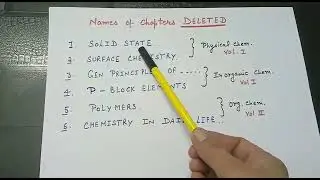 Names of Chapters DELETED
1. SOLID STATE
2. SURFACE CHEMISTRY.
Physical Chem.
Vol. I
3. GEN PRINCIPLES OF -----
4. P-BLOCK ELEMENTS
In organic Chem.
Vol I
5. POLYMERS
6. CHEMISTRY IN DAILY LIFE..
Org. Chem.
Vol II